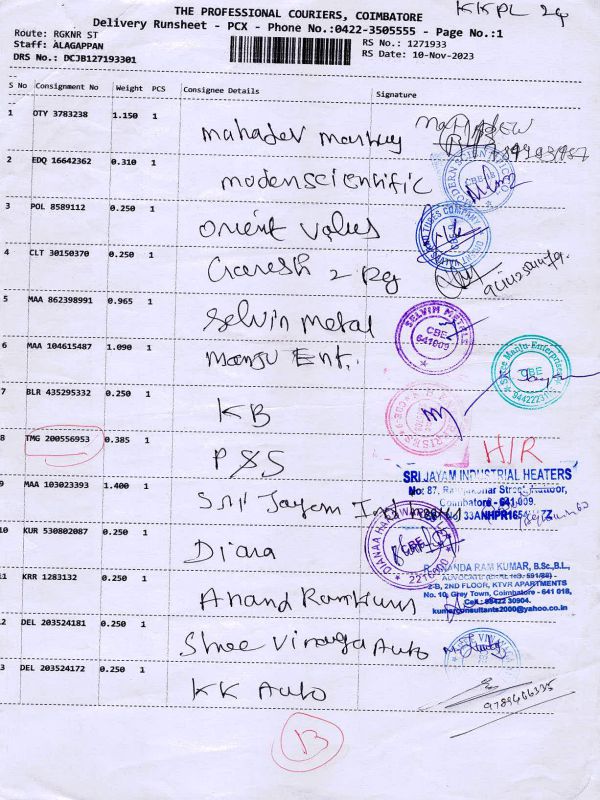 KKPL
THE PROFESSIONAL COURIERS, COIMBATORE
Delivery Runsheet - PCX - Phone No.:0422-3505555 - Page No.:1
Route: RGKNR ST
Staff: ALAGAPPAN
DRS No.: DCJB127193301
RS No.: 1271933
RS Date: 10-Nov-2023
S No Consignment No Weight PCS Consignee Details Signature
1 OTY 3783238 1.150 1 mahadev
MAHADEW
2 EDQ 16642362 0.310 1 modenscientific
MODERN SCIENTIFIC
CBE
3 POL 8589112 0.250 1 orient valves
ORIENT VALVES AND TUBES COMPANY
4 CLT 30150370 0.250 1 Ganesh 2 Rg
5 MAA 862398991 0.965 1 Selvin metal
SELVIM METALS
CBE
641009
6 MAA 104615487 1.090 1 manju Ent.
Shree Manju Enterprises
CBE
7 BLR 435295332 0.250 1 KB
8 TMG 200556953 0.385 1 PSS
H/R
9 MAA 103023393 1.400 1 Sri Jayam
SRI JAYAM INDUSTRIAL HEATERS
No: 87,
Coimbatore - 641 009.
10 KUR 530802087 0.250 1 Diana
CBE
11 KRR 1283132 0.250 1 Anand Ramkum
ANANDA RAM KUMAR, B.Sc.,B.L.,
ADVOCATE
2-B, 2ND FLOOR, KTVR APARTMENTS
No. 10, Grey Town, Coimbatore - 641 018,
Cell: 98422 30904.
kumarconsultants2000@yahoo.co.in
12 DEL 203524181 0.250 1 Shree Vinayaga Auto
13 DEL 203524172 0.250 1 KK Auto
9789466335
13